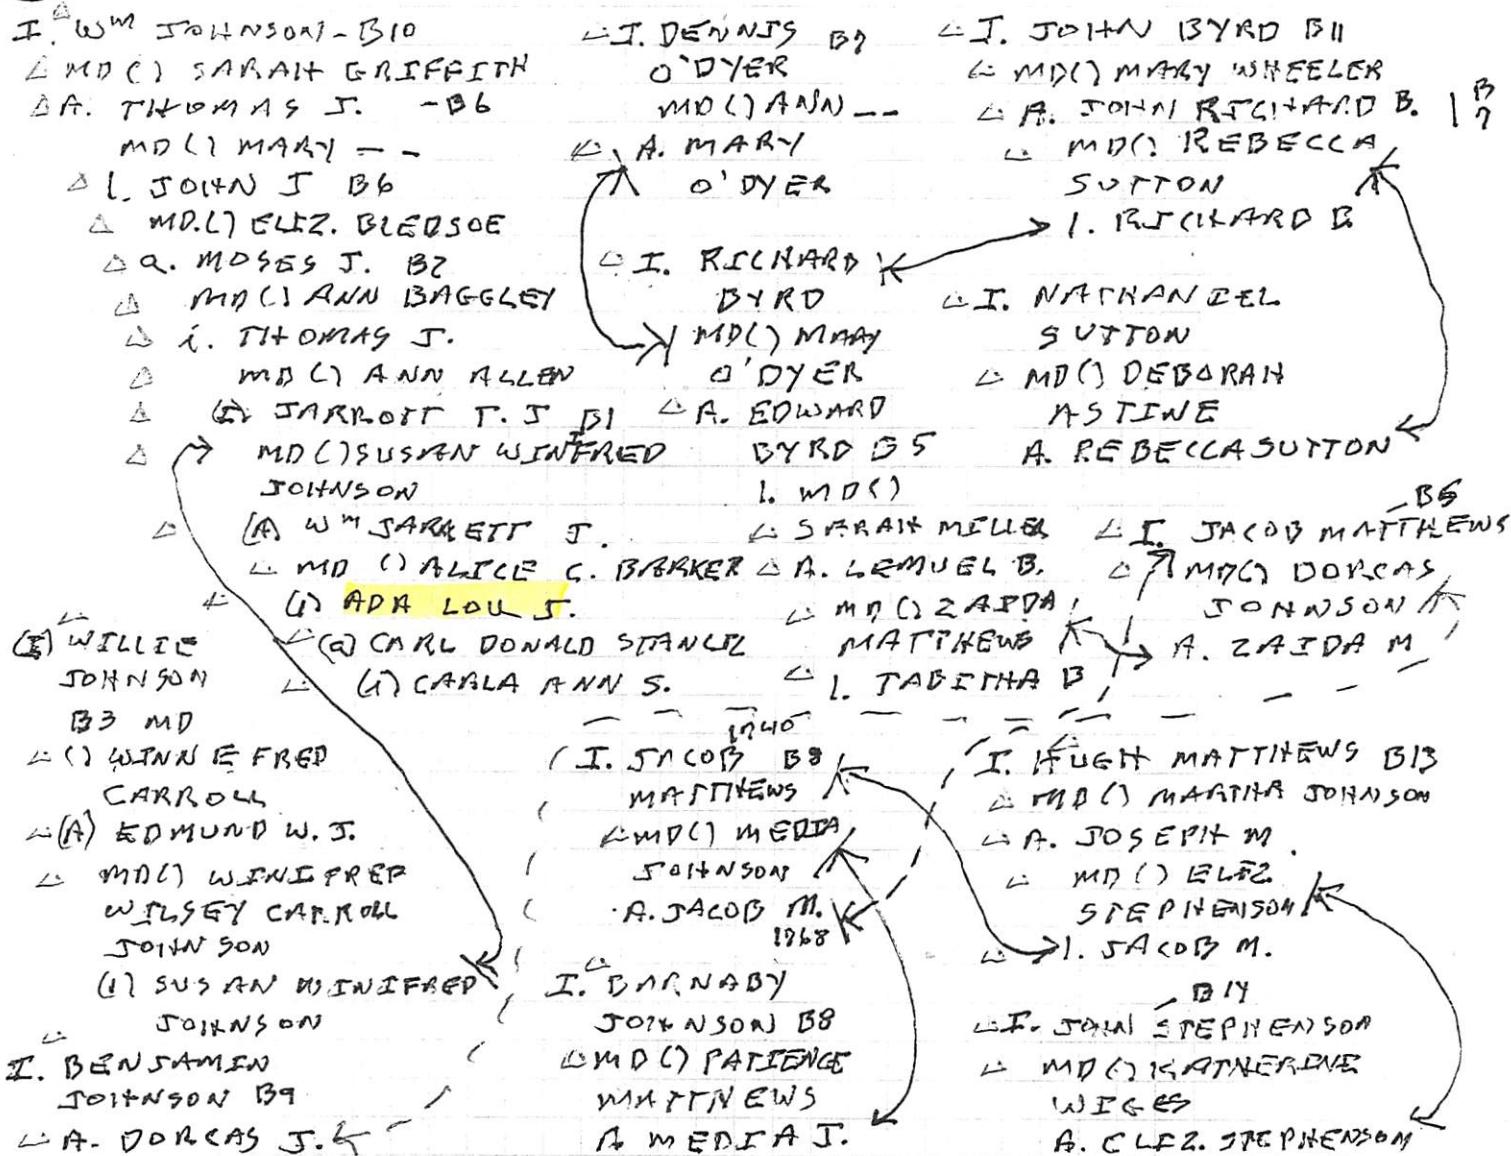 I. Wᵐ JOHNSON - B10
MD () SARAH GRIFFITH
A. THOMAS J. - B6
MD () MARY --
1. JOHN J B6
MD. () ELIZ. BLEDSOE
a. MOSES J. B2
MD () ANN BAGGLEY
i. THOMAS J.
MD () ANN ALLEN
(I) JARROTT T. J B1
MD () SUSAN WINIFRED
JOHNSON
(A) Wᵐ JARRETT J.
MD () ALICE C. BARKER
(1) ADA LOU J.
(a) CARL DONALD STANCIL
(i) CARLA ANN S.
(I) WILLIE
JOHNSON
B3 MD
() WINNEFRED
CARROLL
(A) EDMUND W. J.
MD () WINIFRED
WILSEY CARROLL
JOHNSON
(1) SUSAN WINIFRED
JOHNSON
I. BENJAMIN
JOHNSON B9
A. DORCAS J.
I. DENNIS B7
O'DYER
MD () ANN --
A. MARY
O'DYER
I. RICHARD
BYRD
MD () MARY
O'DYER
A. EDWARD
BYRD B5
1. MD ()
SARAH MILLER
A. LEMUEL B.
MD () ZAIDA
MATTHEWS
1. TABITHA B
1740
I. JACOB B8
MATTHEWS
MD () MEDIA
JOHNSON
A. JACOB M.
1768
I. BARNABY
JOHNSON B8
MD () PATIENCE
MATTHEWS
A MEDIA J.
I. JOHN BYRD B11
MD () MARY WHEELER
A. JOHN RICHARD B. B7
MD () REBECCA
SUTTON
1. RICHARD B
I. NATHANIEL
SUTTON
MD () DEBORAH
ASTINE
A. REBECCA SUTTON
B5
I. JACOB MATTHEWS
MD () DORCAS
JOHNSON
A. ZAIDA M
I. HUGH MATTHEWS B13
MD () MARTHA JOHNSON
A. JOSEPH M.
MD () ELIZ
STEPHENSON
1. JACOB M.
B14
I. JOHN STEPHENSON
MD () KATHERINE
WIGES
A. ELIZ. STEPHENSON